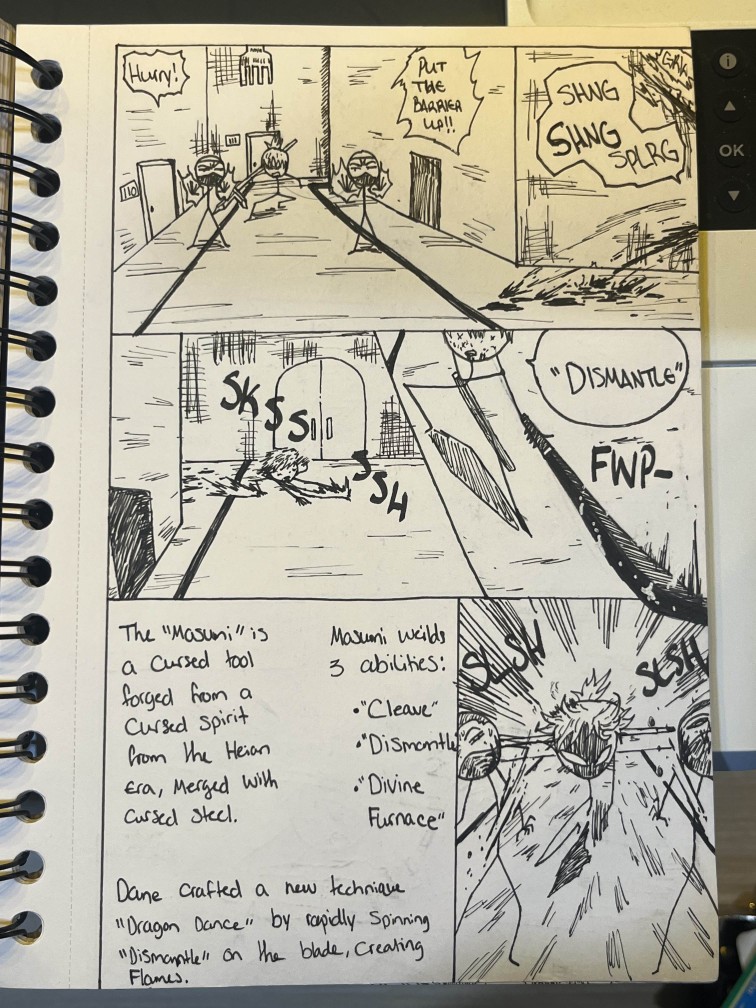 Hurry!
PUT
THE
BARRIER
UP!!
SHNG
SHNG
SPLRG
110
SKSSSSSH
"DISMANTLE"
FWP-
The "Masumi" is
a Cursed tool
forged from a
Cursed Spirit
from the Heian
Era, Merged with
Cursed Steel.
Masumi weilds
3 abilities:
•"Cleave"
•"Dismantle"
•"Divine
Furnace"
Dane crafted a new technique
"Dragon Dance" by rapidly Spinning
"Dismantle" on the blade, Creating
Flames.
SLSH
SLSH
OK